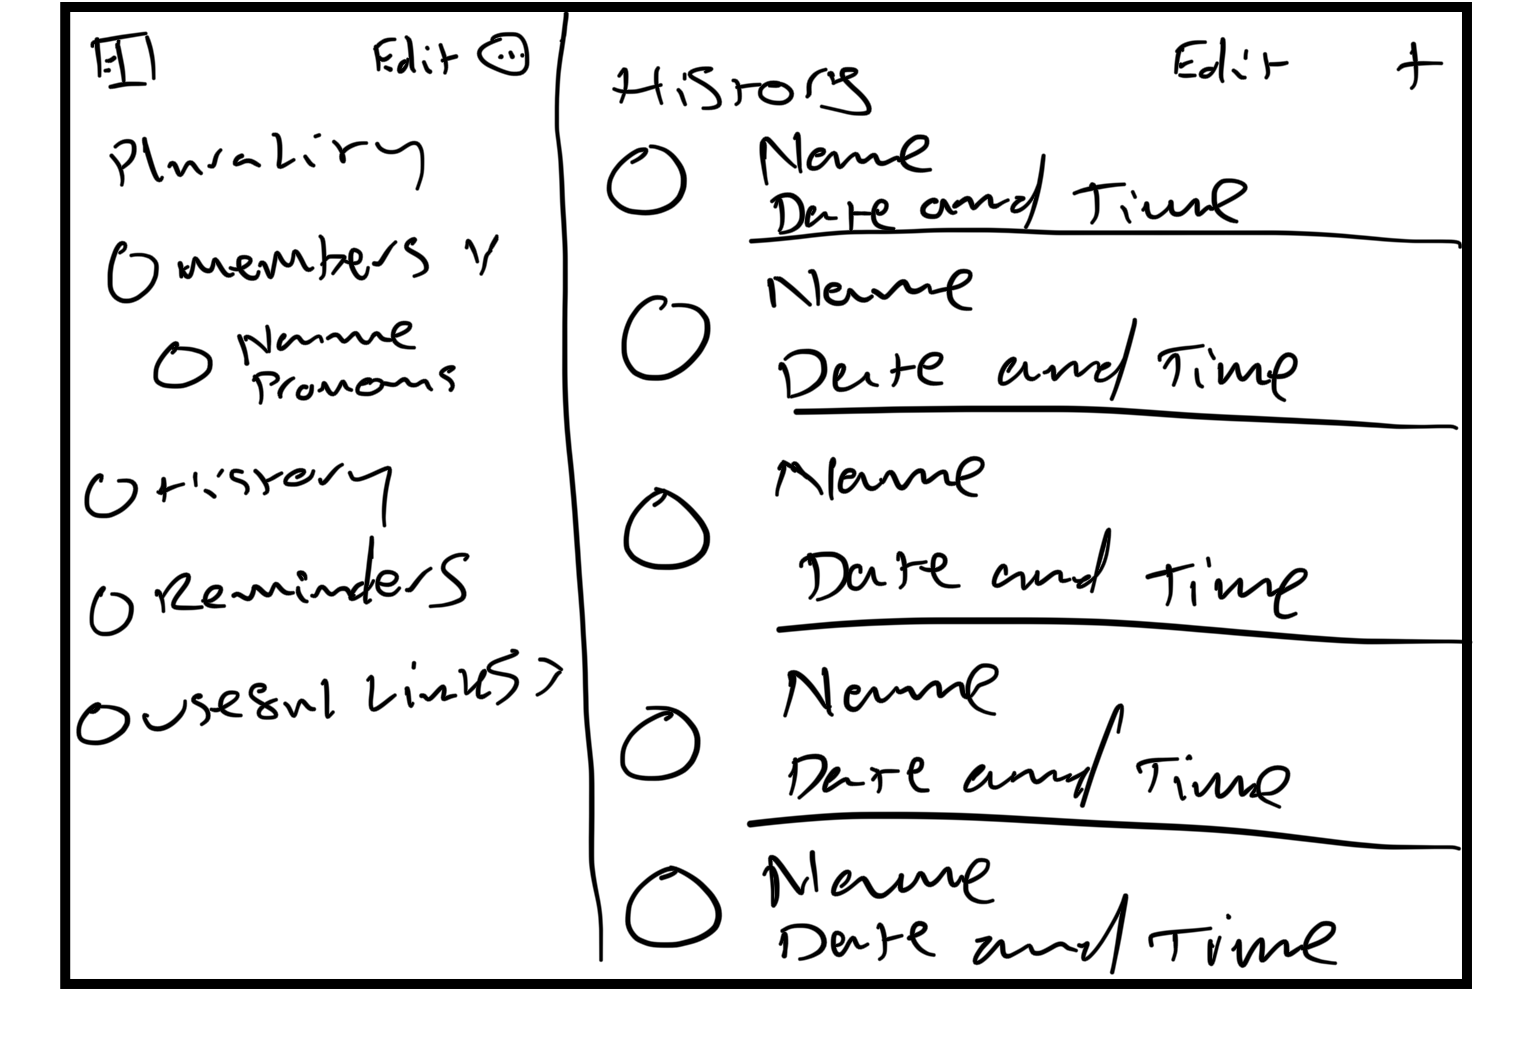 Edit
Plurality
members v
Name
Pronouns
History
Reminders
Useful Links >
History
Edit +
Name
Date and Time
Name
Date and Time
Name
Date and Time
Name
Date and Time
Name
Date and Time